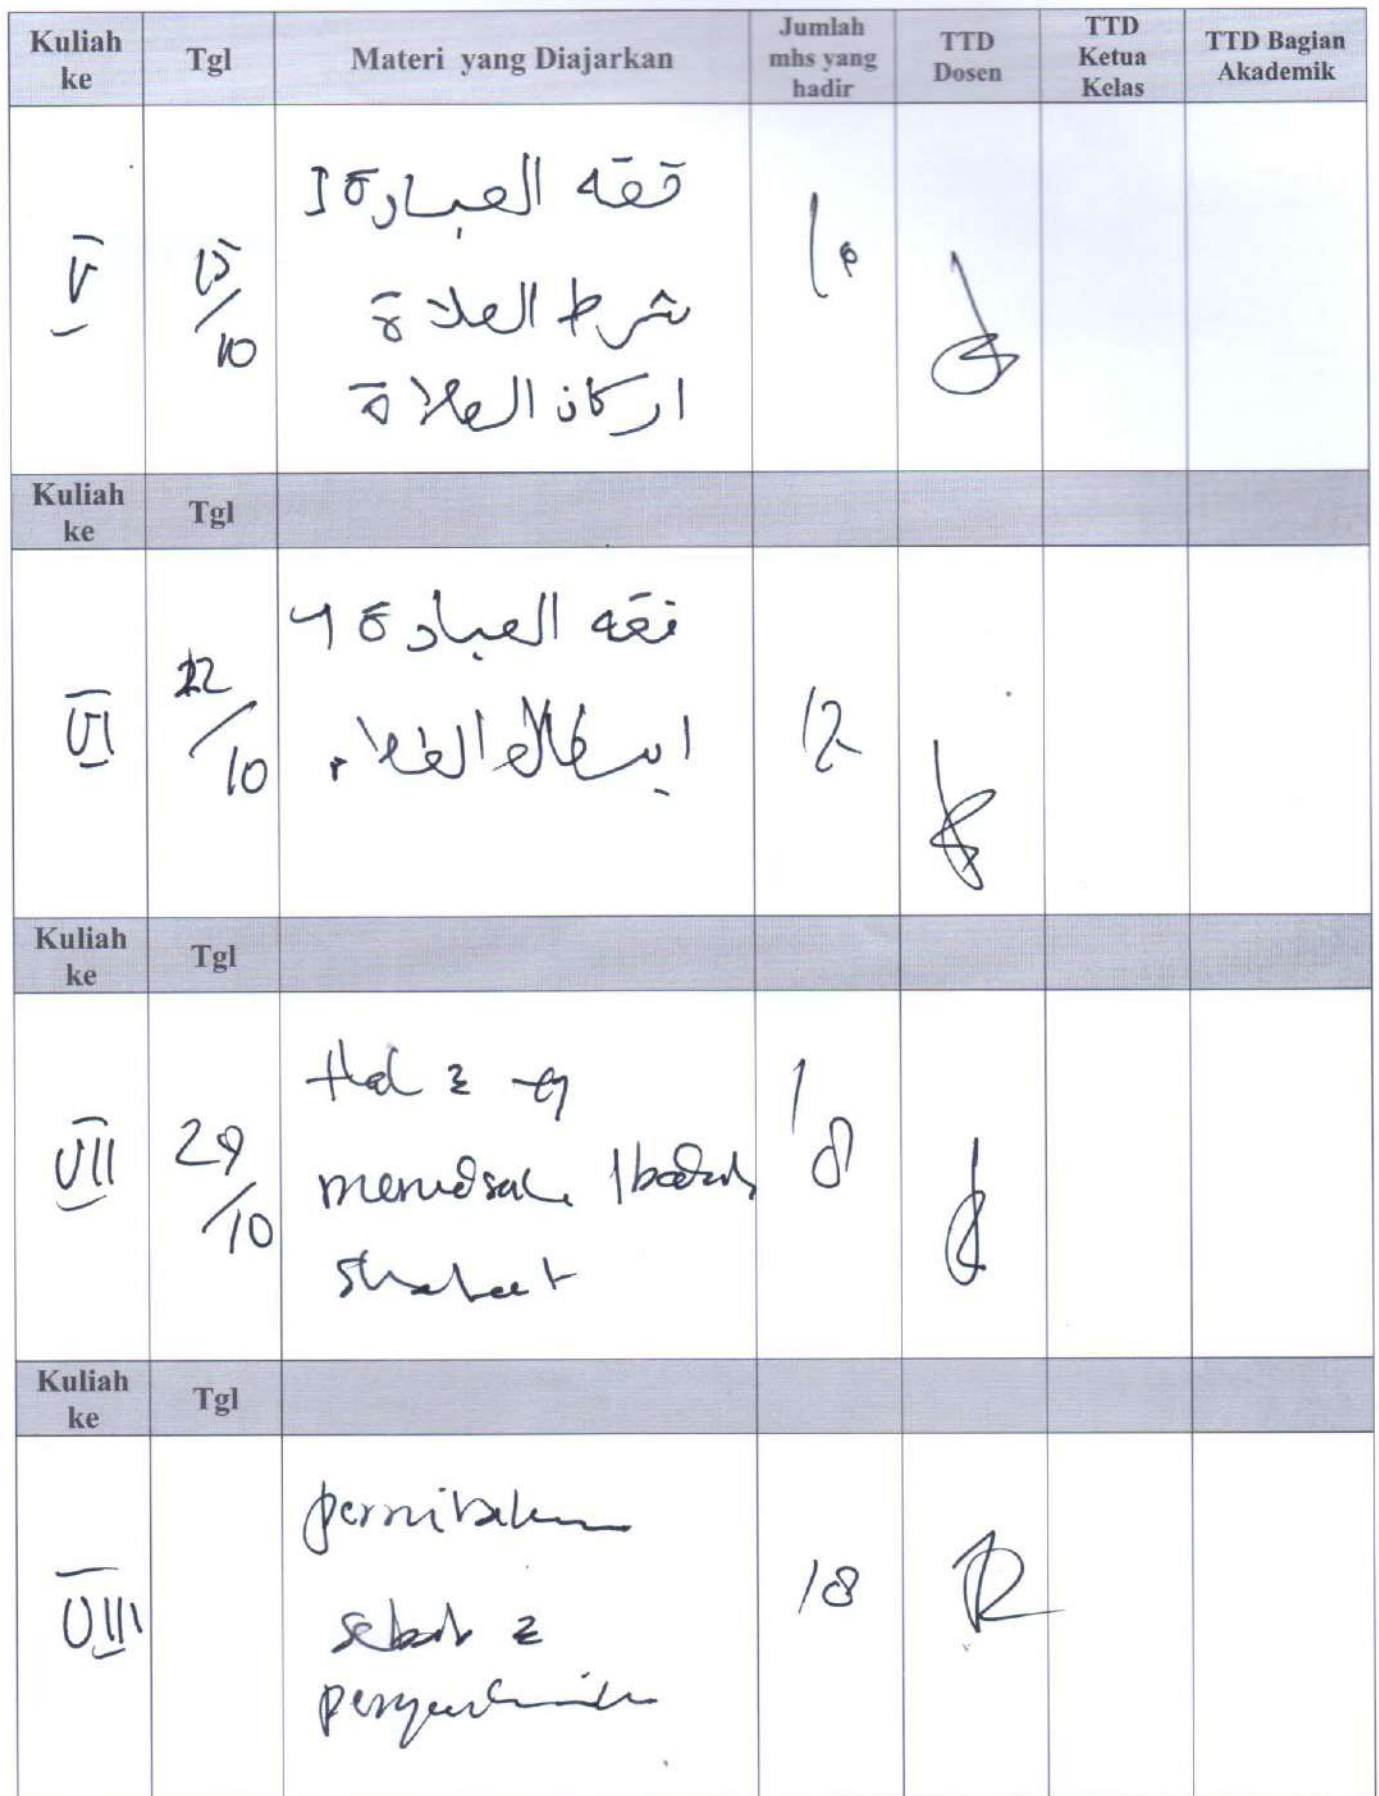 Kuliah ke | Tgl | Materi yang Diajarkan | Jumlah mhs yang hadir | TTD Dosen | TTD Ketua Kelas | TTD Bagian Akademik
V | 15/10 | فقه العبادة I | 10
شرط الصلاة
اركان الصلاة
Kuliah ke | Tgl
VI | 22/10 | فقه العبادة ٢ | 12
Kuliah ke | Tgl
VII | 29/10 | Hal 2 yg | 18
merusak Ibadah
shalat
Kuliah ke | Tgl
VIII | pernikahan | 18
sebab 2